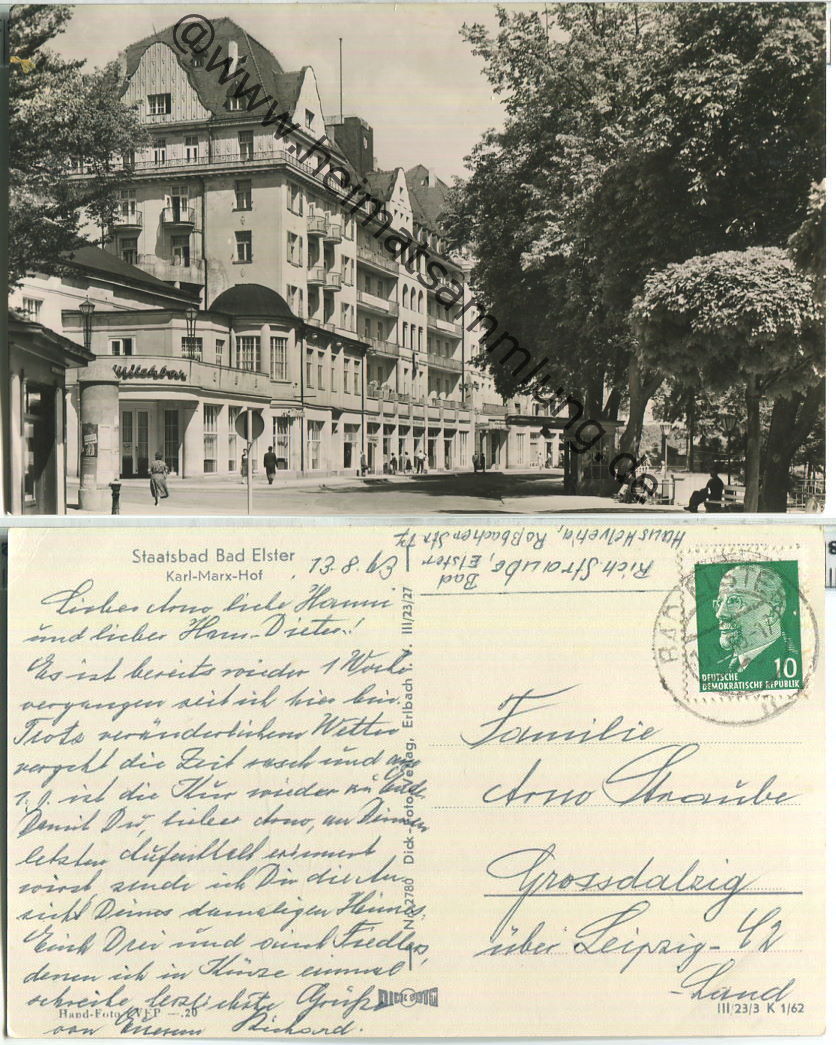 @www.heimatsammlung.de
Milchbar
Staatsbad Bad Elster
Karl-Marx-Hof
13.8.63
Rich. Straube, Bad Elster
Haus Helvetia, Roßbacher Str. 17
Lieber Arno liebe Hanni
und lieber Hans-Dieter!
Es ist bereits wieder 1 Woche
vergangen seit ich hier bin.
Trotz veränderlichem Wetter
vergeht die Zeit rasch und am
1.9. ist die Kur wieder zu Ende
Damit Du, lieber Arno, an Deinen
letzten Aufenthalt erinnert
wirst, sende ich Dir die An-
sicht Deines damaligen Heimes.
Euch Drei und auch Fiedler,
denen ich in Kürze einmal
schreibe, herzlichste Grüße
von Eurem Richard.
Hand-Foto EVP —.20
Nr. 2780 Dick-Foto-Verlag, Erlbach i. V. III/23/27
DICK FOTO
BAD ELSTER
DEUTSCHE
DEMOKRATISCHE REPUBLIK
10
Familie
Arno Straube
Grossdalzig
über Leipzig-C2
-Land
III/23/3 K 1/62